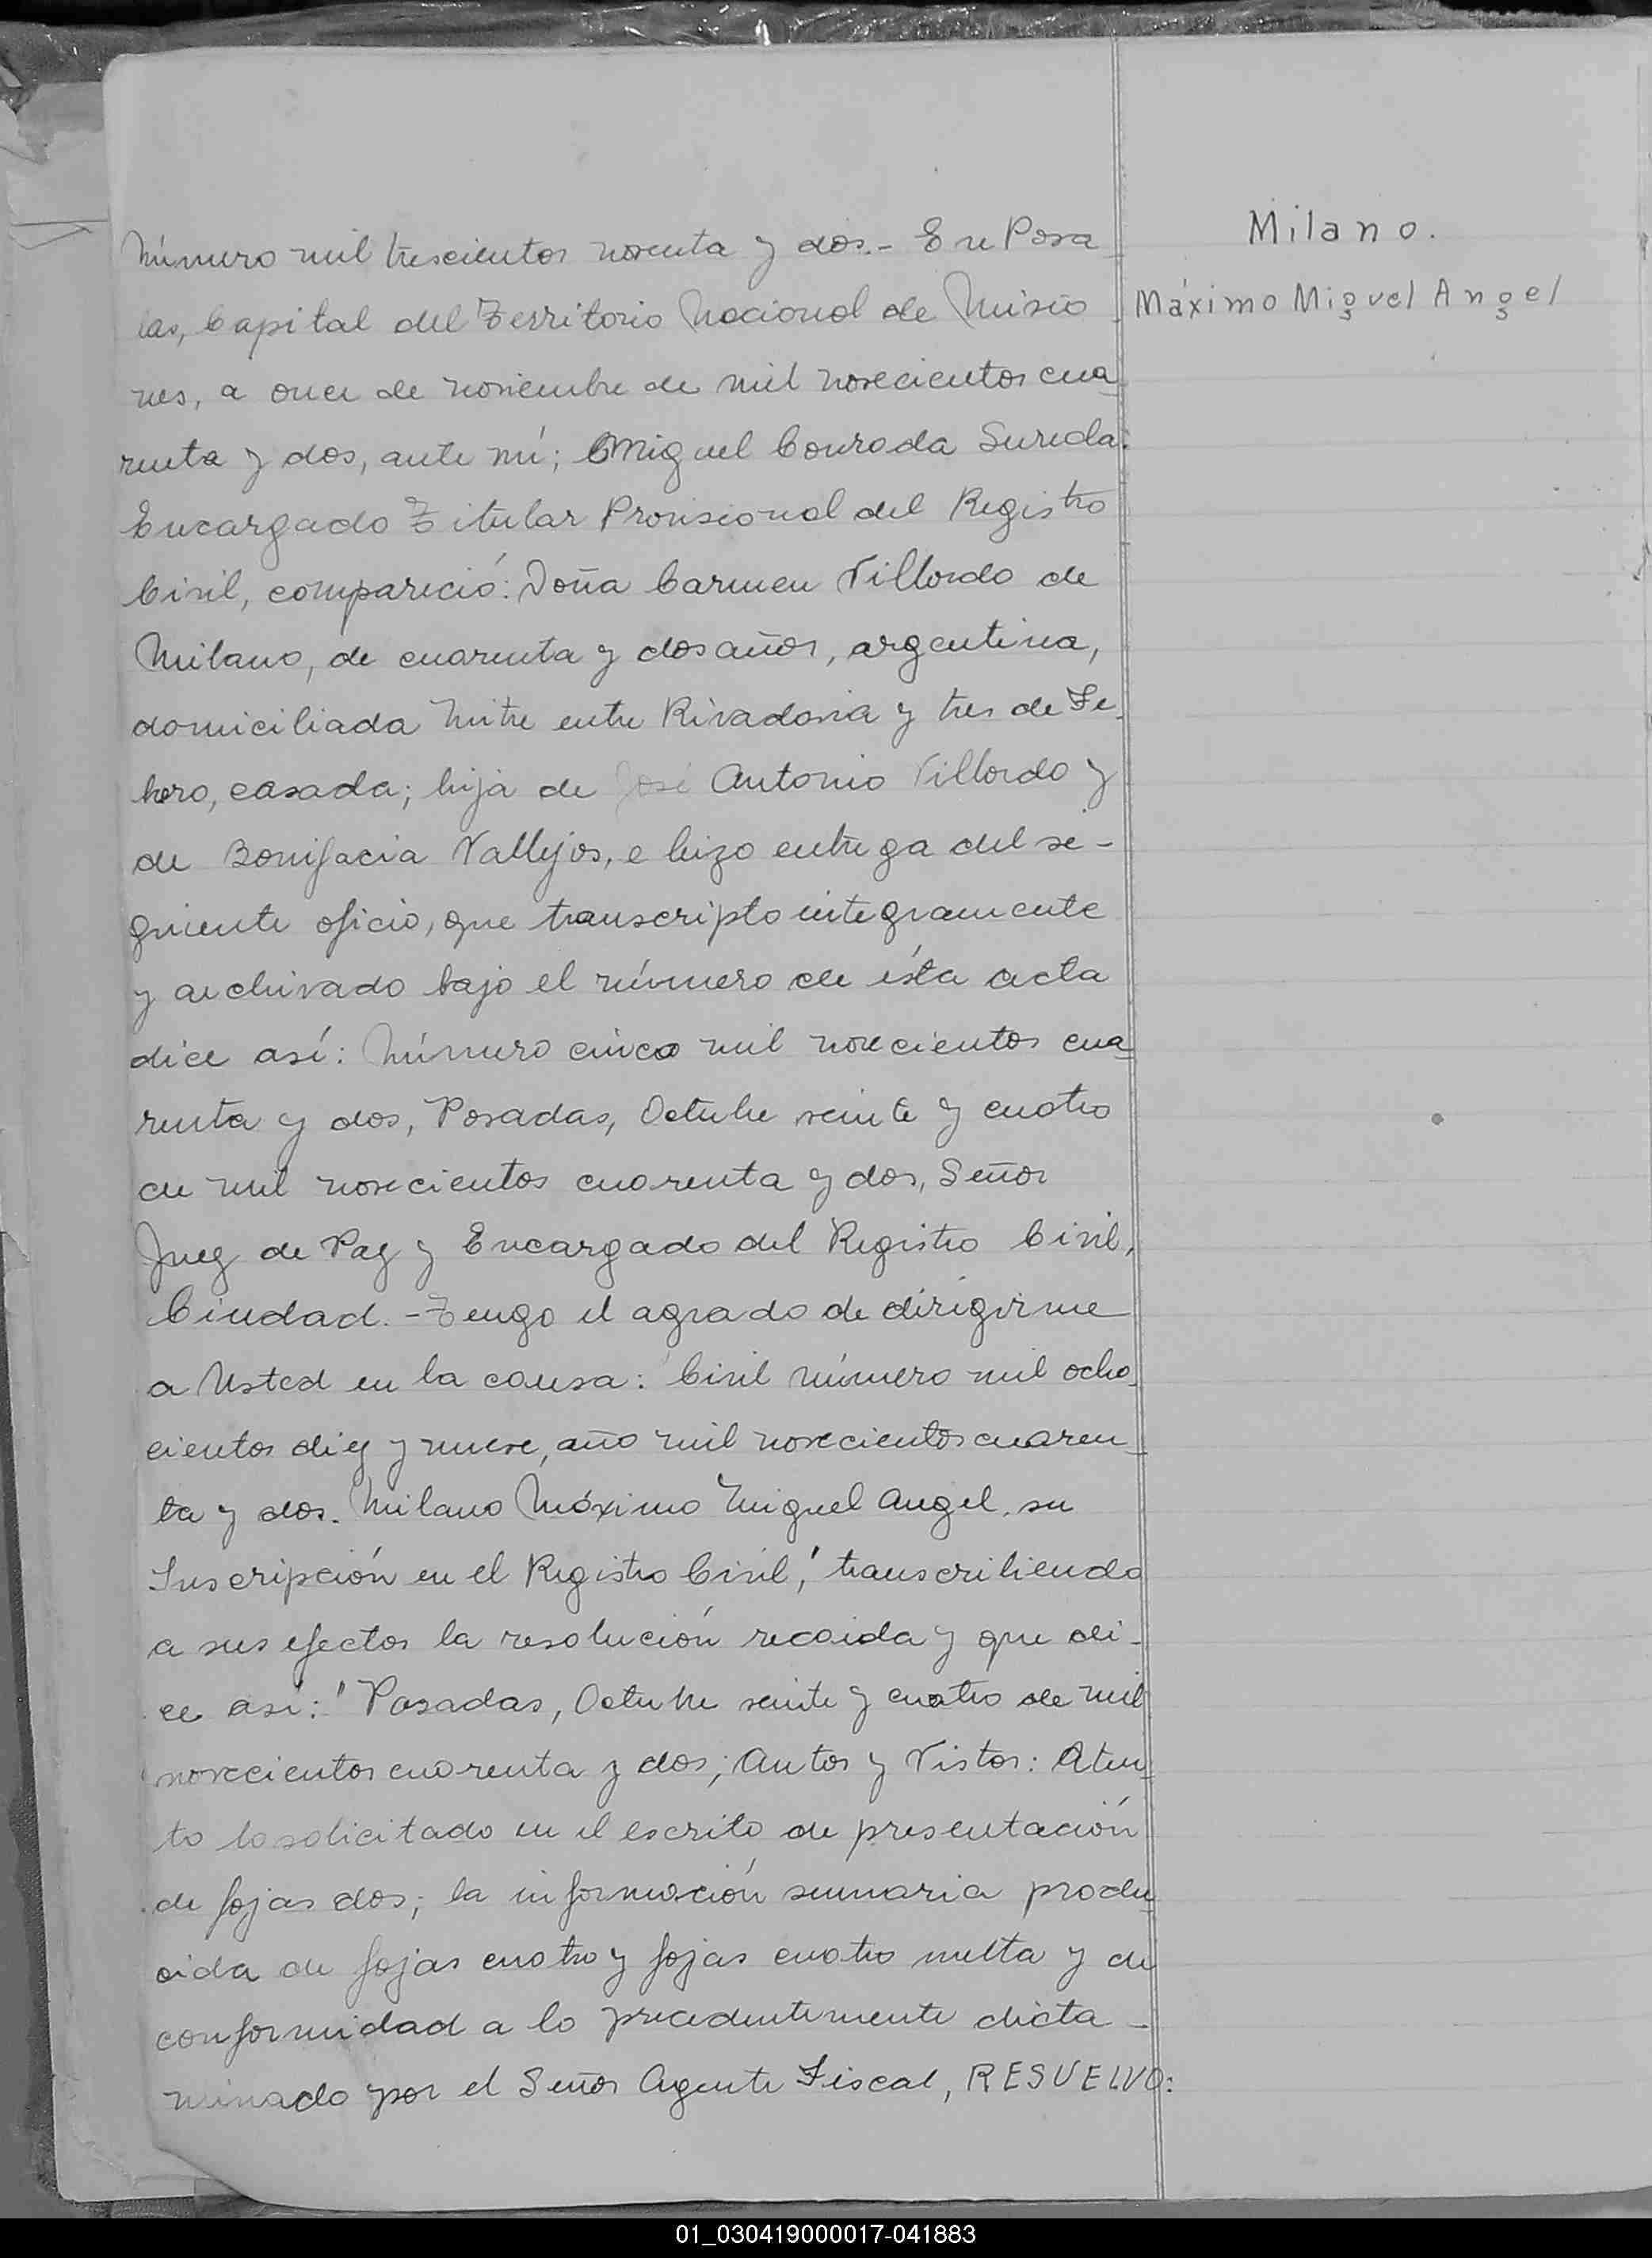 Milano.
Máximo Miguel Angel
Número mil trescientos noventa y dos.- En Posa
das, Capital del Territorio Nacional de Misio
nes, a once de noviembre de mil novecientos cua
renta y dos, ante mí; Miguel Conrado Sureda.
Encargado Titular Provisional del Registro
Civil, compareció: Doña Carmen Villordo de
Milano, de cuarenta y dos años, argentina,
domiciliada Mitre entre Rivadavia y tres de Fe
brero, casada; hija de José Antonio Villordo y
de Bonifacia Vallejos, e hizo entrega del si-
guiente oficio, que transcripto integramente
y archivado bajo el número de ésta acta
dice así: Número cinco mil novecientos cua
renta y dos, Posadas, Octubre veinte y cuatro
de mil novecientos cuarenta y dos, Señor
Juez de Paz y Encargado del Registro Civil,
Ciudad.-Tengo el agrado de dirigirme
a Usted en la causa: Civil número mil ocho
cientos diez y nueve, año mil novecientos cuaren
ta y dos. Milano Máximo Miguel Angel, su
Inscripción en el Registro Civil," transcribiendo
a sus efectos la resolución recaida y que di-
ce así: "Posadas, Octubre veinte y cuatro de mil
novecientos cuarenta y dos; Autos y Vistos: Aten
to lo solicitado en el escrito de presentación
de fojas dos; la información sumaria produ
cida de fojas cuatro y fojas cuatro vuelta y de
conformidad a lo precedentemente dicta-
minado por el Señor Agente Fiscal, RESUELVO:
01_030419000017-041883